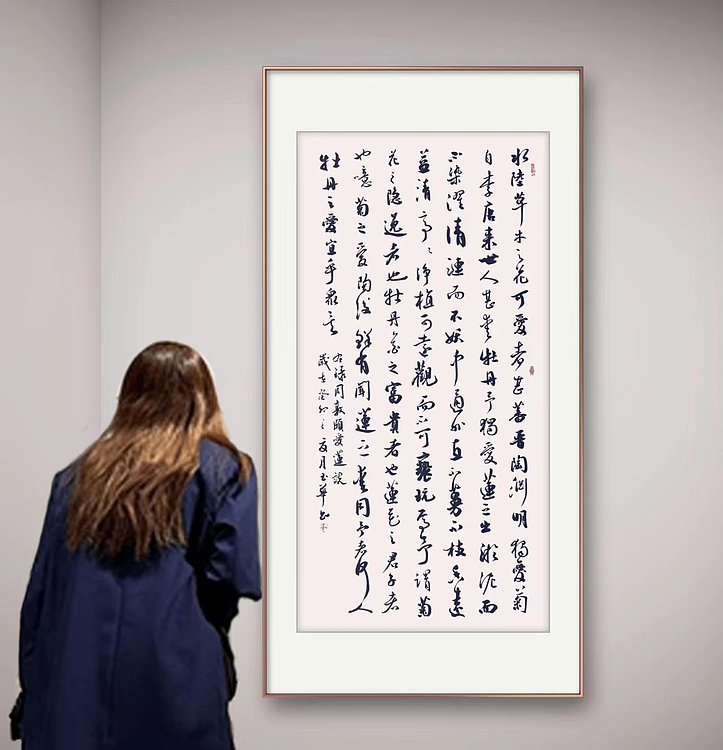 水陸草木之花可愛者甚蕃晋陶淵明獨愛菊
自李唐来世人甚爱牡丹予獨愛蓮之出淤泥而
不染濯清漣而不妖中通外直不蔓不枝香遠
益清亭亭净植可遠觀而不可褻玩焉予謂菊
花之隐逸者也牡丹花之富貴者也蓮花之君子者
也噫菊之愛陶後鲜有聞蓮之爱同予者何人
牡丹之愛宜乎衆矣
右録周敦頤愛蓮説
歲在癸卯之夏月玉華書